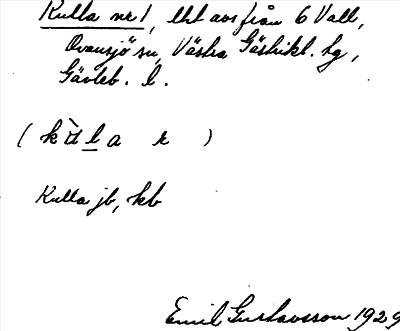 Kulla nr 1, lht avs från 6 Vall,
Ovansjö sn, Västra Gästrikl. hg,
Gävleb. l.
( k l a r )
Kulla jb, kb
Emil Gustavsson 1929